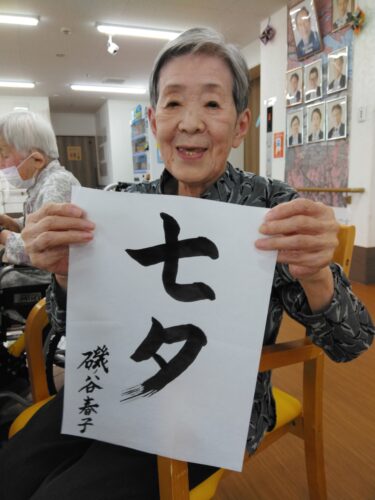 七夕
磯谷春子